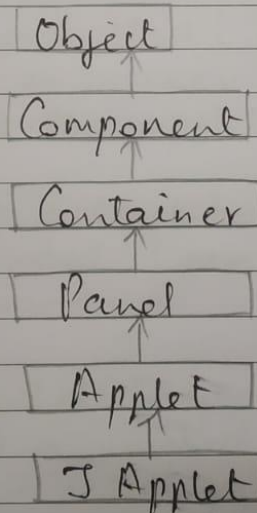 Object
Component
Container
Panel
Applet
J Applet